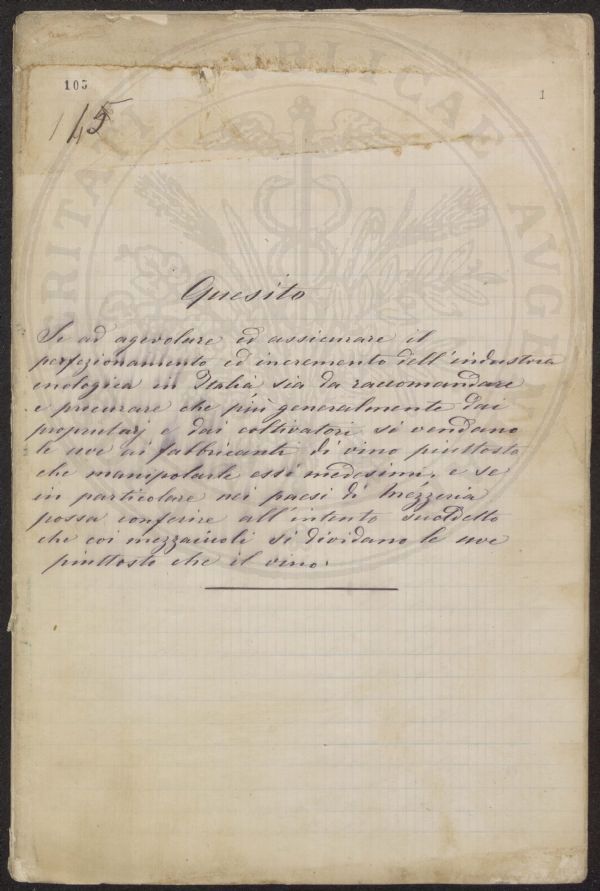 105
1
145
Quesito
Se ad agevolare ed assicurare il
perfezionamento ed incremento dell'industria
enologica in Italia sia da raccomandare
e procurare che più generalmente dai
proprietarj e dai coltivatori si vendano
le uve ai fabbricanti di vino piuttosto
che manipolarle essi medesimi, e se
in particolare nei paesi di Mezzeria
possa conferire all'intento suddetto
che coi mezzaiuoli si dividano le uve
piuttosto che il vino.